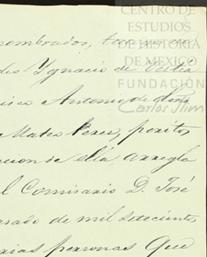 CENTRO DE
ESTUDIOS
DE HISTORIA
DE MÉXICO
FUNDACIÓN
Carlos Slim
nombrados,
Ygnacio de
Antonio de
Mateo Perez, peritos
de ella arregla
l Comisario D. José
sado de mil setecient
rias personas que